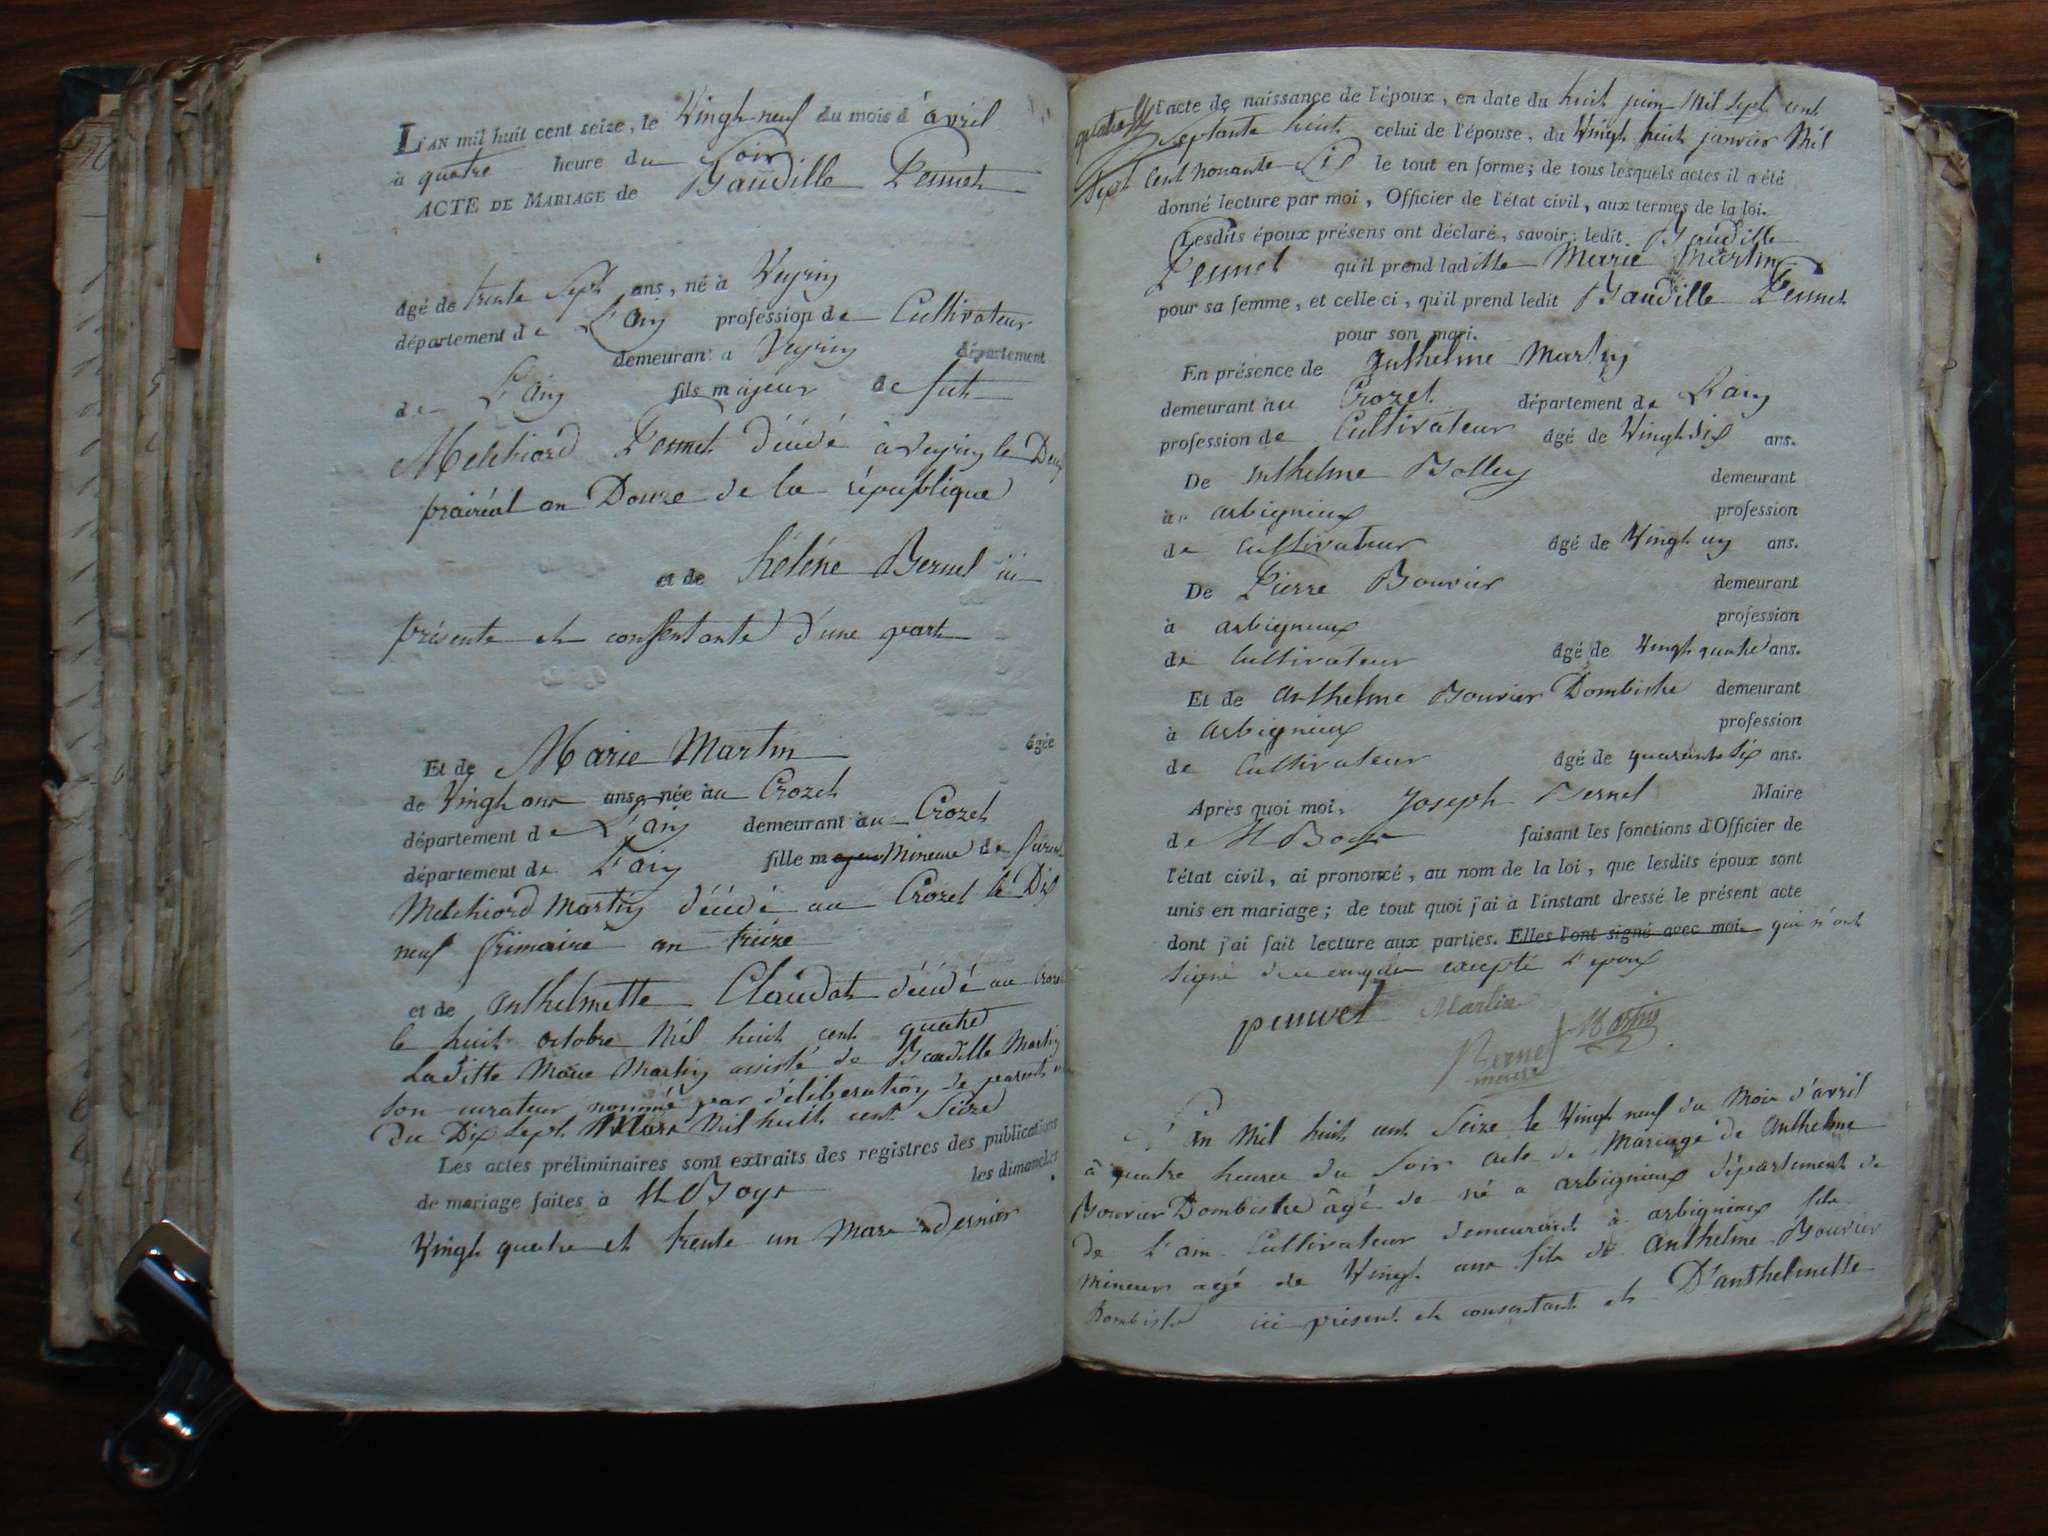 L'AN mil huit cent seize, le Vingt neuf du mois d'avril
à quatre heure du Soir
ACTE DE MARIAGE de Baudille Peunet
âgé de trente Sept ans, né à Veyrin
département de L'ain profession de Cultivateur
demeurant à Veyrin département
de L'ain fils majeur de fut
Melchiord Peunet décédé à veyrin le Deux
prairéal an Douze de la république
et de héléne Bernel ici
présente et consentante d'une part
Et de Marie Martin âgée
de Vingt ans ans, née au Crozet
département de L'ain demeurant au Crozet
département de L'ain fille majeur Mineure de furent
Melchiord Martin décédé au Crozet le Dix
neuf frimaire an treize
et de anthelmette Claudat décédé au Crozet
le huit octobre Mil huit cent quatre
Laditte Marie Martin assisté de Baudille Martin
son curateur nommé par déliberation de parents en
du Dix Sept Mars Mil huit cent Seize
Les actes préliminaires sont extraits des registres des publications
de mariage faites à St Boys les dimanches
Vingt quatre et trente un Mars dernier
l'acte de naissance de l'époux, en date du huit juin Mil Sept cent
Septante huit celui de l'épouse, du Vingt huit janvier Mil
Sept Cent Nonante Six le tout en forme; de tous lesquels actes il a été
donné lecture par moi, Officier de l'état civil, aux termes de la loi.
Lesdits époux présens ont déclaré, savoir: ledit Baudille
Peunet qu'il prend laditte Marie Martin
pour sa femme, et celle ci, qu'il prend ledit Baudille Peunet
pour son mari.
En présence de Anthelme Martin
demeurant au Crozet département de L'ain
profession de Cultivateur âgé de Vingt Six ans.
De Anthelme Bolley demeurant
à arbignieux profession
de Cultivateur âgé de Vingt un ans.
De Pierre Bouvier demeurant
à arbignieux profession
de Cultivateur âgé de Vingt quatre ans.
Et de anthelme Bouvier Dombistre demeurant
à arbignieux profession
de Cultivateur âgé de quarante Six ans.
Après quoi moi, Joseph Bernel Maire
de St Boys faisant les fonctions d'Officier de
l'état civil, ai prononcé, au nom de la loi, que lesdits époux sont
unis en mariage; de tout quoi j'ai à l'instant dressé le présent acte
dont j'ai fait lecture aux parties. Elles l'ont signé avec moi. qui n'ont
signé excepté L'epoux
peunet Martin
Bernel Martin
maire
L'an Mil huit cent Seize le Vingt neuf du Mois d'avril
à quatre heures du Soir acte de Mariage de Anthelme
Bouvier Dombistre âgé de né a arbignieux département de
de L'ain Cultivateur demeurant à arbignieux fils
mineur agé de Vingt ans fils de Anthelme Bouvier
Dombistre ici présent et consentant et D'anthelmette